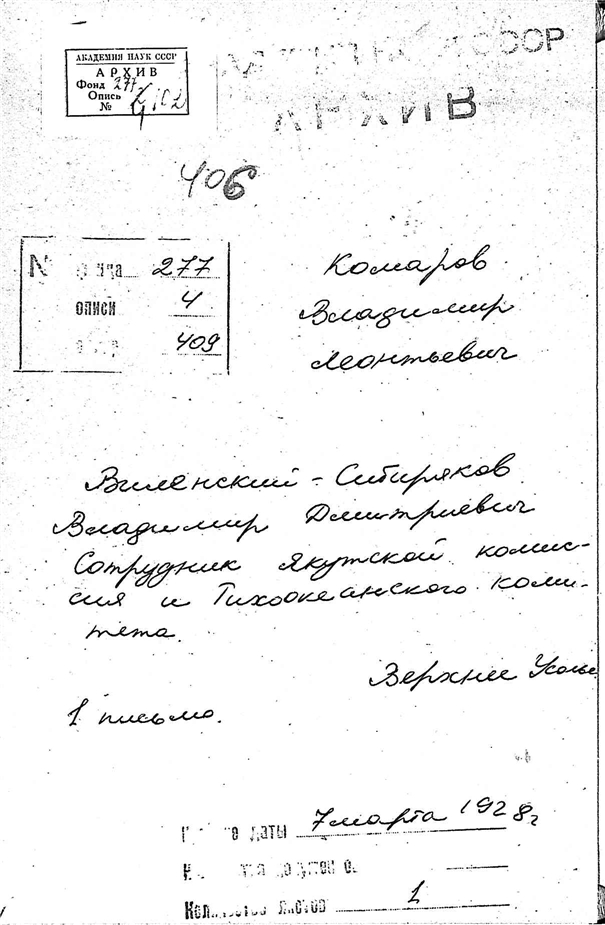 АКАДЕМИЯ НАУК СССР
АРХИВ
Фонд 277
Опись 4
№
СССР
АРХИВ
406
277
описи 4
409
Комаров
Владимир
Леонтьевич
Виленский-Сибиряков
Владимир Дмитриевич
Сотрудник Якутской комис-
сия и Тихоокеанского коми-
тета.
Верхнее Усолье
1 письмо.
даты 7 марта 1928 г
Количество листов 1